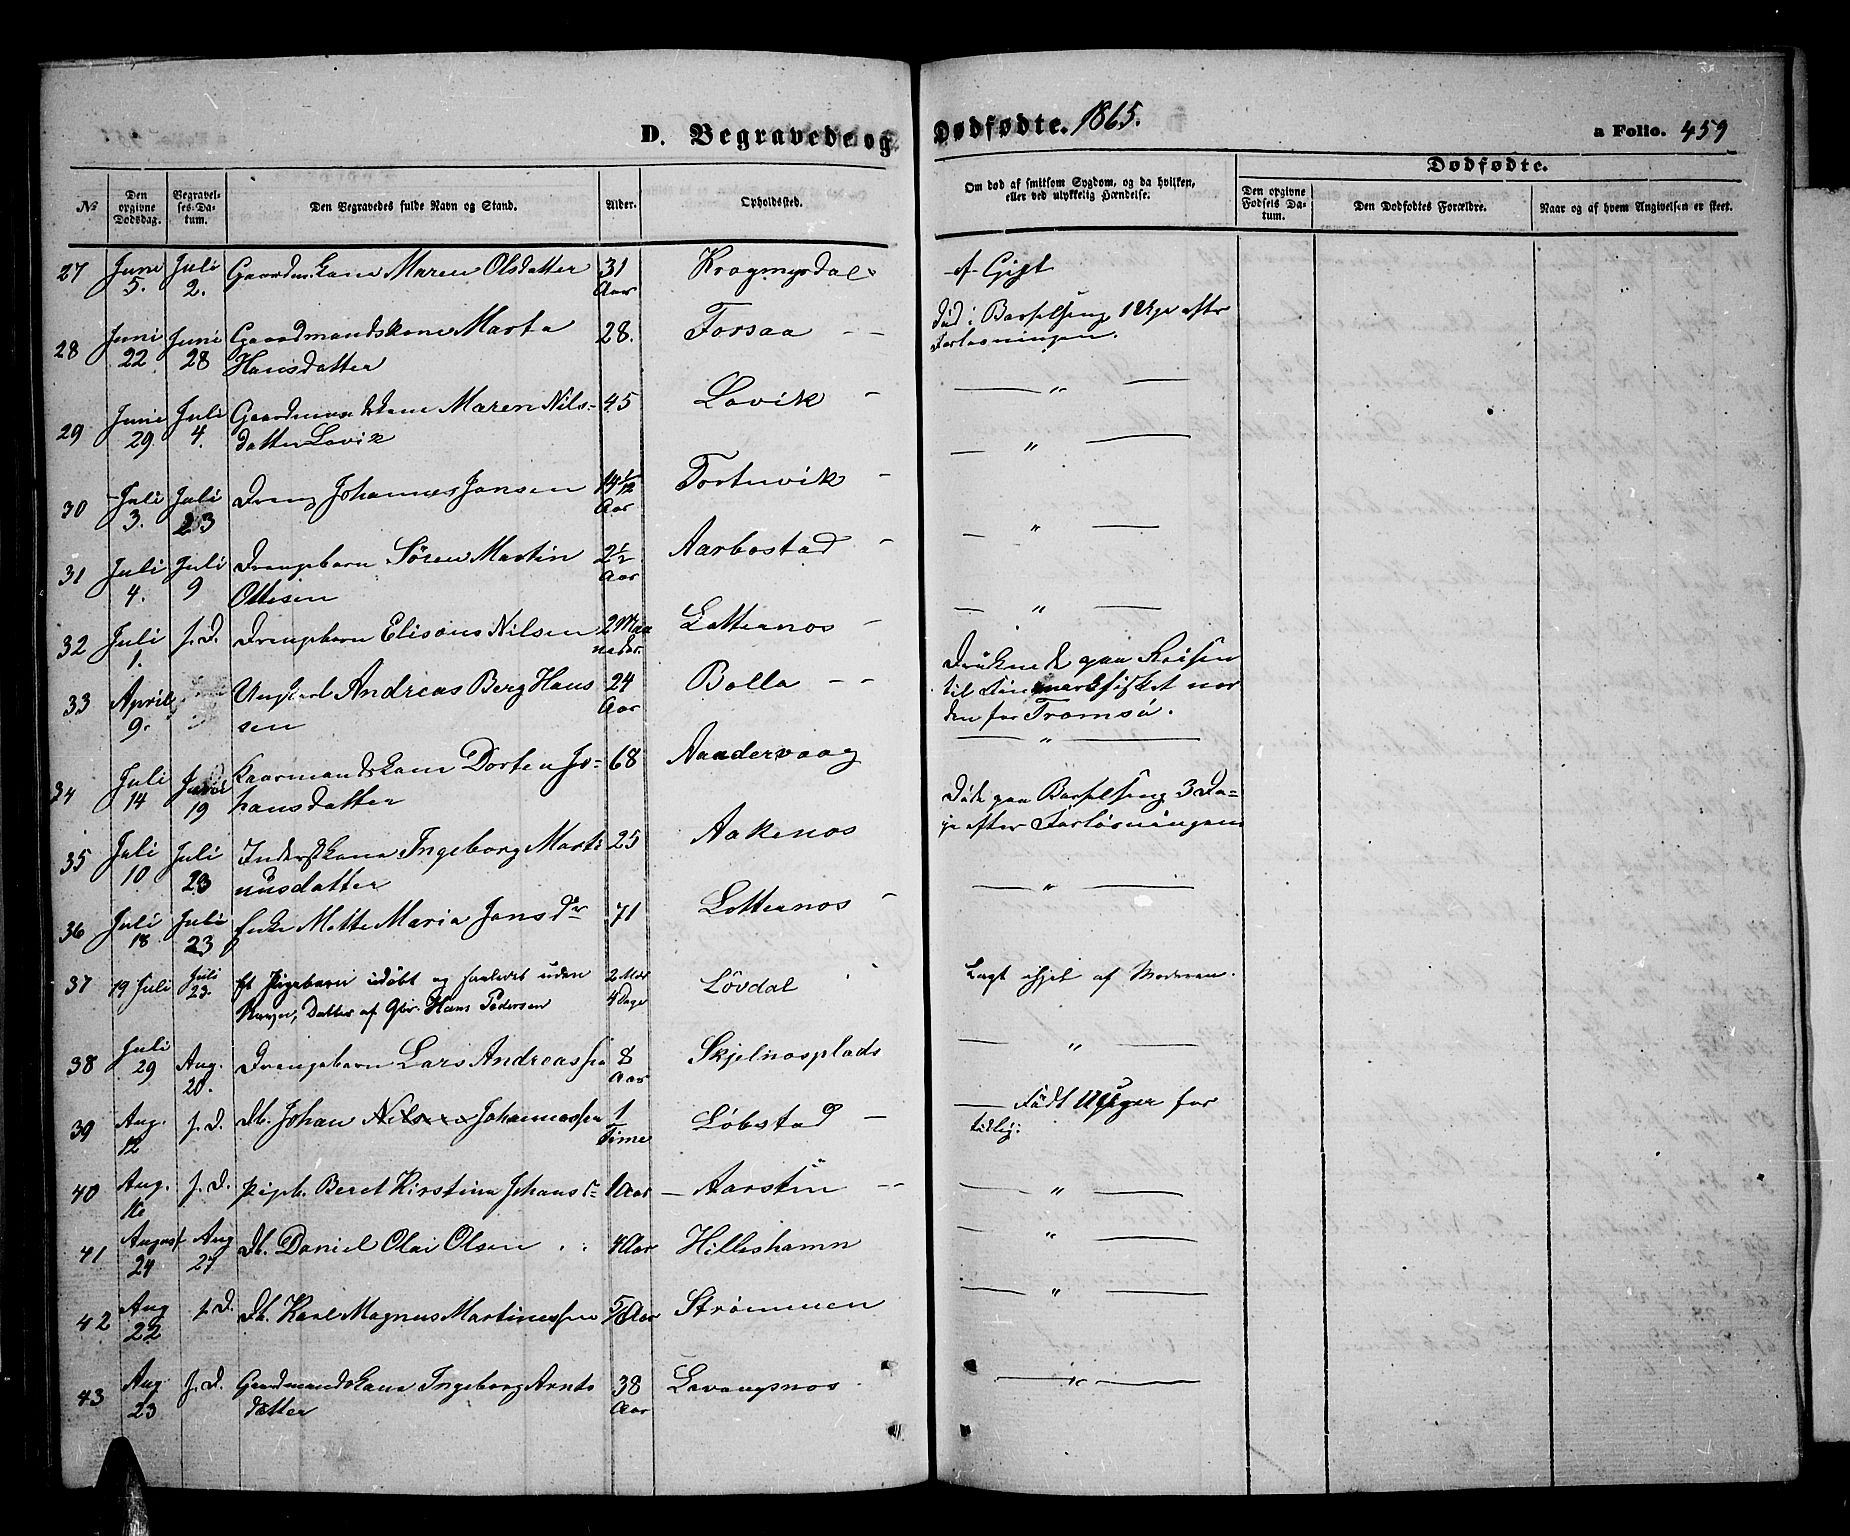 D. Begravede og Dødfødte. 1865.
a Folio. 459
№
Den opgivne Dødsdag.
Begravelses-Datum.
Den Begravedes fulde Navn og Stand.
Alder.
Opholdsted.
Om død af smitsom Sygdom, og da hvilken,
eller ved ulykkelig Hændelse.
Dødfødte.
Den opgivne Fødsels Datum.
Den Dødfødtes Forældre.
Naar og af hvem Angivelsen er skeet.
27 Juni 5. Juli 2. Gaardm.kone Maren Olsdatter 31 Aar Krogmyrdal af Gigt
28 Juni 22 Juni 28 Gaardmandskone Marta 28. Forsaa Død i Barselseng 1 Uge efter
Hansdatter Forløsningen.
29 Juni 29 Juli 4. Gaardmandskone Maren Nils= 45 Lovik — " —
datter Lovik
30 Juli 3. Juli 23 Dreng Johannes Jansen 14 1/12 Aar Fortuvik — " —
31 Juli 4. Juli 9 Drengebarn Sören Martin 2½ Aar Aarbostad — " —
Ottesen
32 Juli 1. s. D. Drengebarn Elisæus Nilsen 2 Maaneder Lotternes — " —
33 April 9. Ungkarl Andreas Berg Han 24 Aar Bolla Druknede paa Reisen
sen til Finmarkfisket nor
den for Tromsö.
34 Juli 14 Juli 19 Kaarmandskone Dorten Jo= 68 Aandervaag — " —
hansdatter
35 Juli 10 Juli 23 Inderstkone Ingeborg Marti 25 Aakenes Døde paa Barselseng 3 Da=
nusdatter ge efter Forløsningen
36 Juli 18 Juli 23 Enke Mette Maria Jans Dr 71 Lotternes — " —
37 19 Juli Juli 23. Et Pigebarn udøbt og saaledes uden 2 Mdr 4 Dage Lövdal Lagt ihjel af Moderen.
Navn, Datter af Gbr. Hans Pedersen
38 Juli 29 Aug. 20. Drengebarn Lars Andreassen 8 Aar Skjelnesplads — " —
39 Aug. 12 s. D. Db. Johan Nilsen Johannessen 1 Time Løbstad — Födt Uger for
tidlig:
40 Aug. 16 s. D. Pigeb. Beret Kirstina Johans D 1 Aar Aarstein — " —
41 August 24 Aug 27 Db. Daniel Olai Olsen 4 Aar Hilleshamn — " —
42 Aug 22 s. D. Db. Karl Magnus Martinussen Aar Strømmen — " —
43 Aug 23 s. D. Gaardmandskone Ingeborg Arnts 38 Aar Lavangsnes — " —
datter